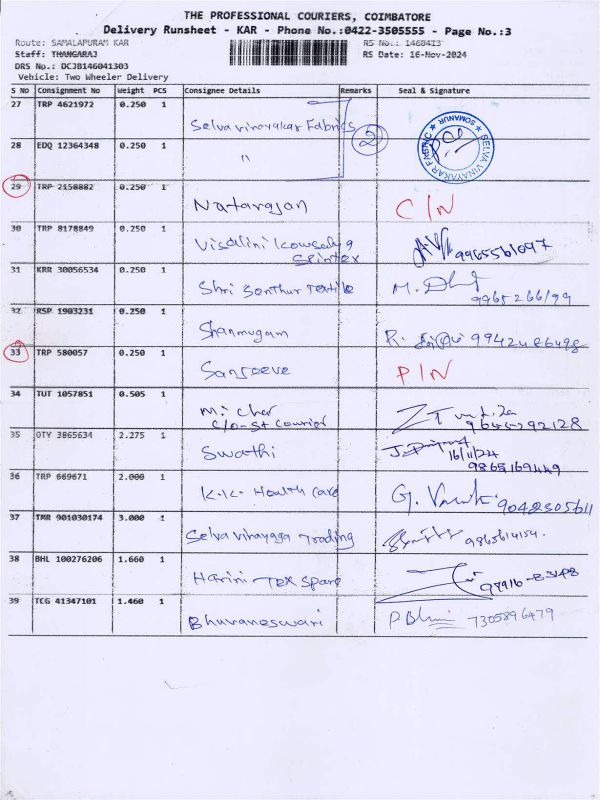 THE PROFESSIONAL COURIERS, COIMBATORE
Delivery Runsheet - KAR - Phone No.:0422-3505555 - Page No.:3
Route: SAMALAPURAM KAR RS No.: 1460413
Staff: THANGARAJ RS Date: 16-Nov-2024
DRS No.: DCJB146041303
Vehicle: Two Wheeler Delivery
S No Consignment No Weight PCS Consignee Details Remarks Seal & Signature
27 TRP 4621972 0.250 1 Selva vinayakar Fabrics 2
SELVA VINAYAKAR FABRIC SOMANUR
28 EDQ 12364348 0.250 1 "
29 TRP 2158882 0.250 1 Natarajan C/N
30 TRP 8178849 0.250 1 Visalini Kowsalya
Spintex 9965561097
31 KRR 30056534 0.250 1 Shri Senthur Textile M.
32 RSP 1903231 0.250 1 Shanmugam R.
33 TRP 580057 0.250 1 Sanjeeve P/N
34 TUT 1057851 0.505 1 M. Cher
C/O-ST Courier
35 OTY 3865634 2.275 1 Swathi
16/11/24
9865169449
36 TRP 669671 2.000 1 K.K. Health Care G. 9042305611
37 TMR 901030174 3.000 1 Selva vinayaga Trading 9865614154.
38 BHL 100276206 1.660 1 Harini Tex spare
39 TCG 41347101 1.460 1 Bhuvaneswari 7305896479